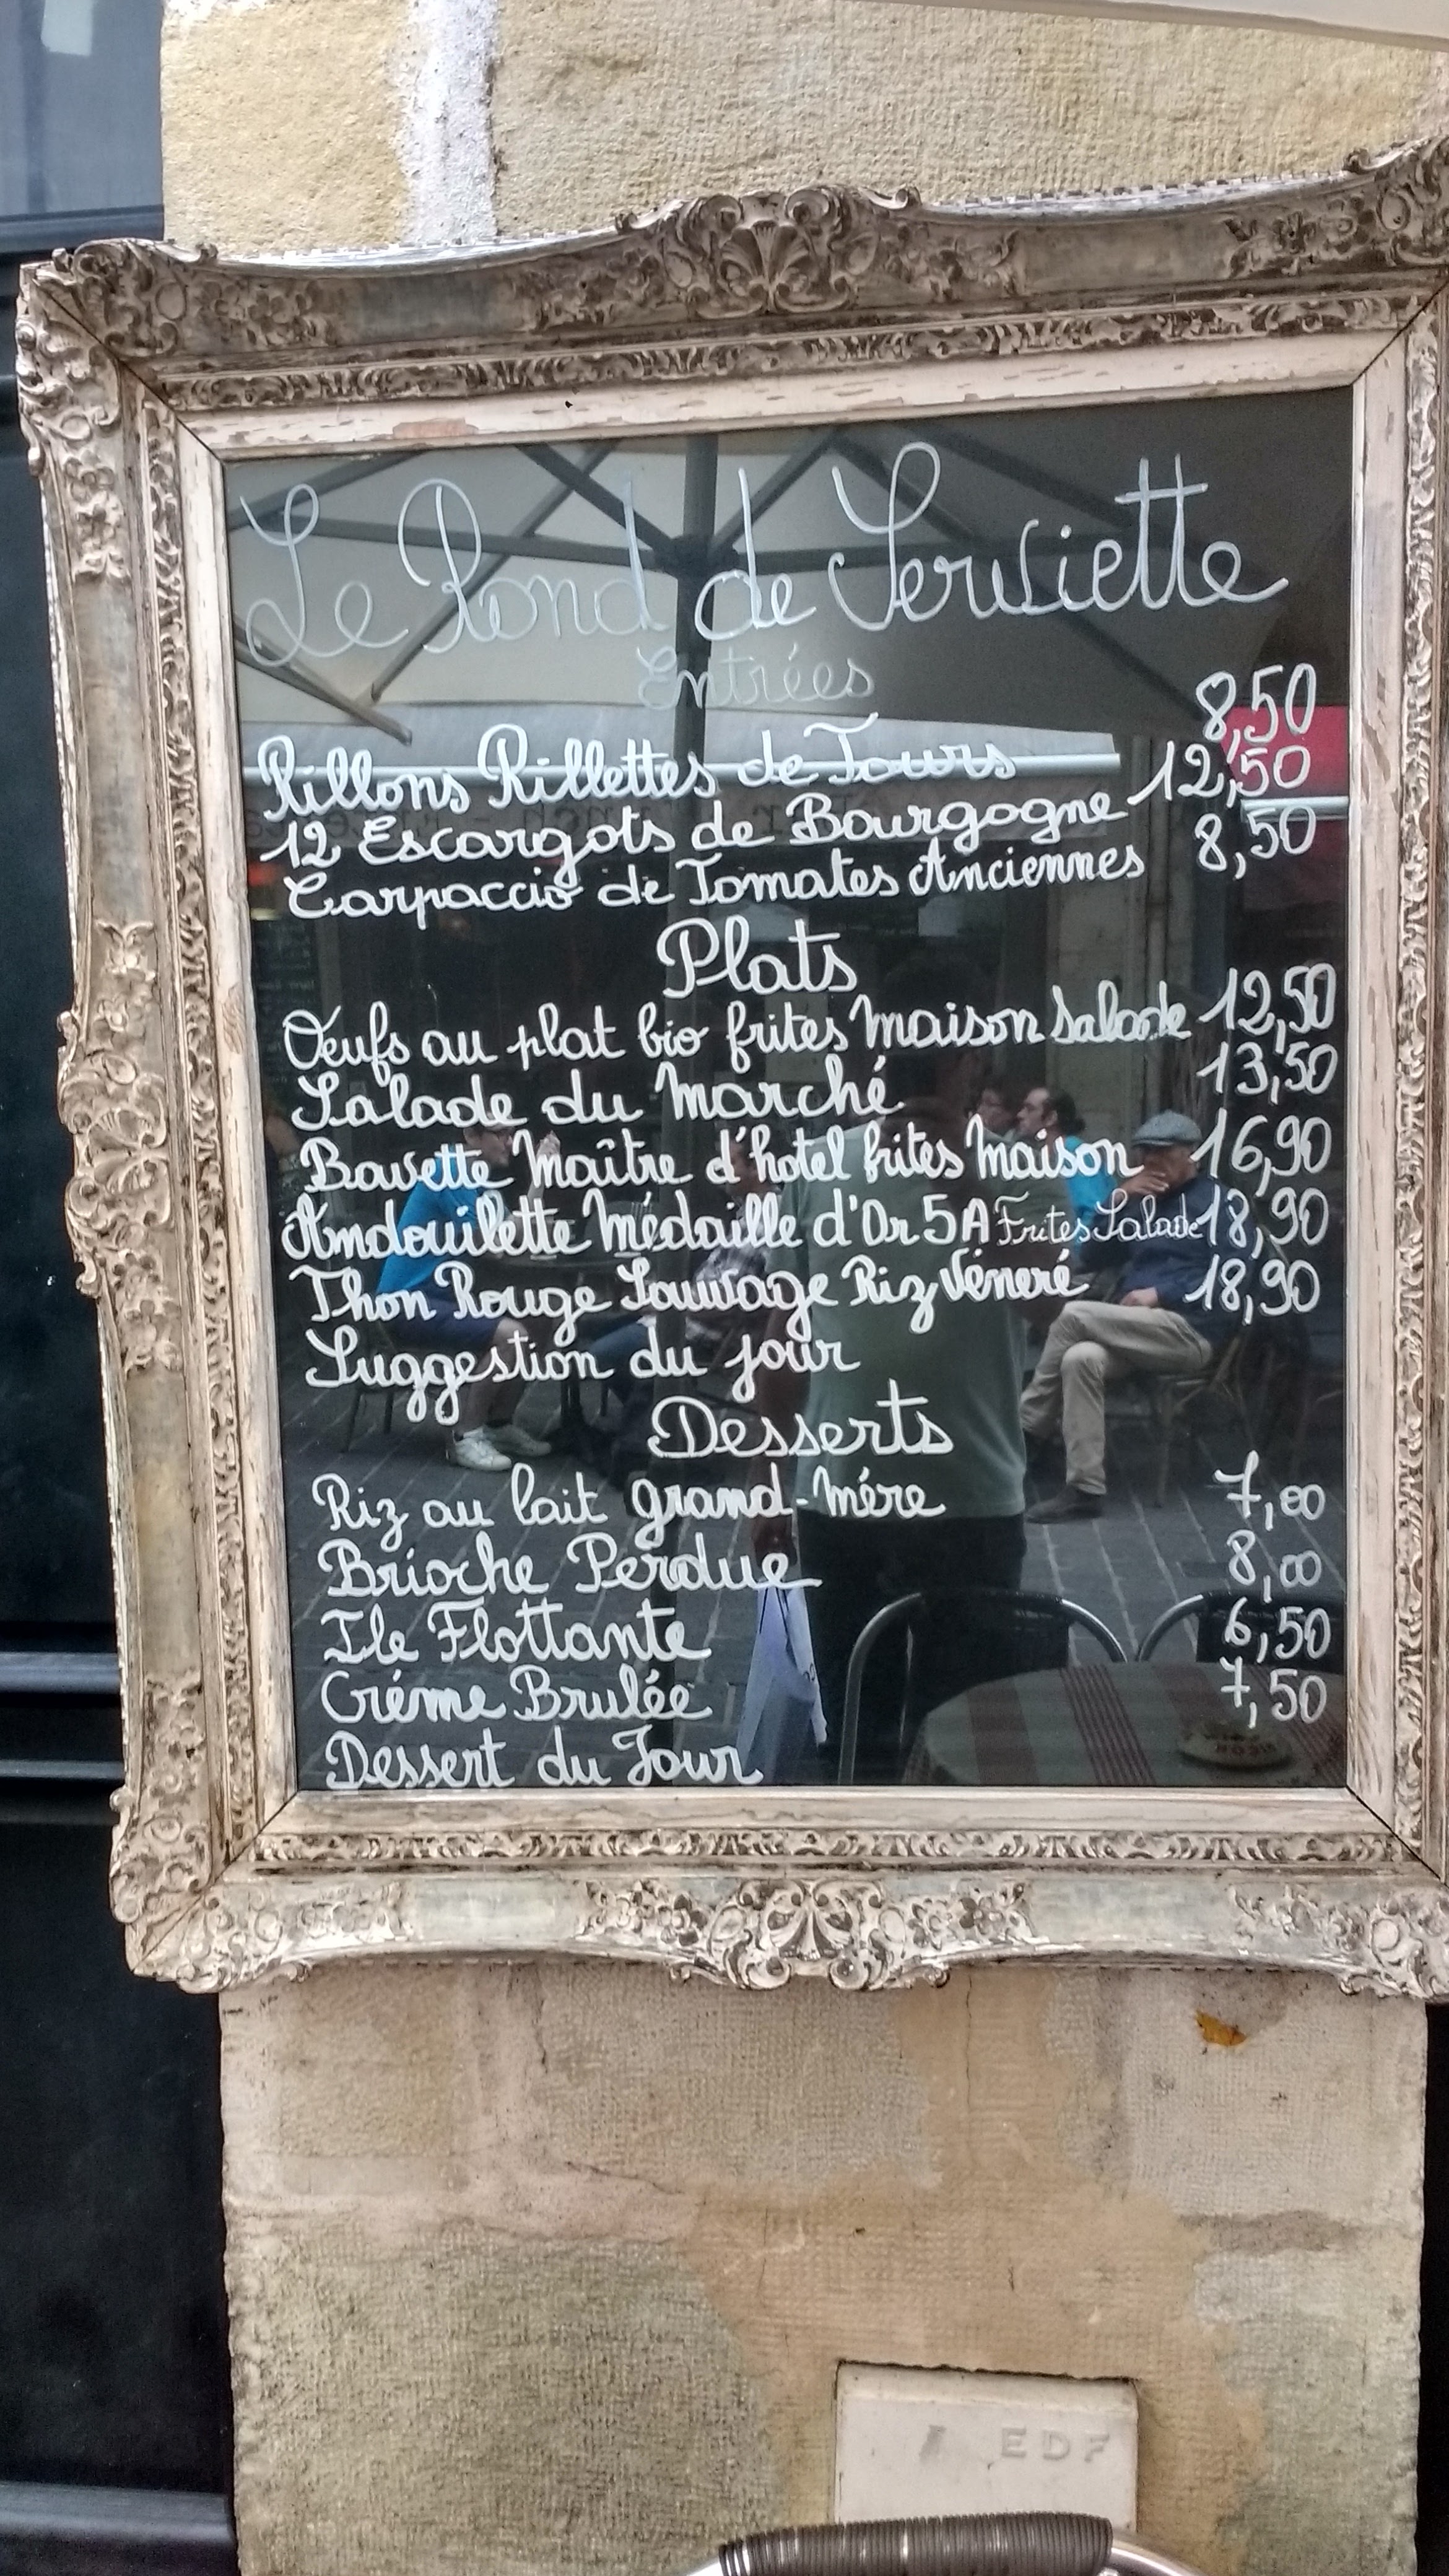 Le Rond de Serviette
Entrées
Rillons Rillettes de Tours 8,50
12 Escargots de Bourgogne 12,50
Carpaccio de Tomates Anciennes 8,50
Plats
Oeufs au plat bio frites Maison Salade 12,50
Salade du Marché 13,50
Bavette Maître d'hotel frites Maison 16,90
Andouillette Médaille d'Or 5A Frites Salade 18,90
Thon Rouge Sauvage Riz Véneré 18,90
Suggestion du jour
Desserts
Riz au lait grand-Mére 7,00
Brioche Perdue 8,00
Ile Flottante 6,50
Créme Brulée 7,50
Dessert du Jour
EDF